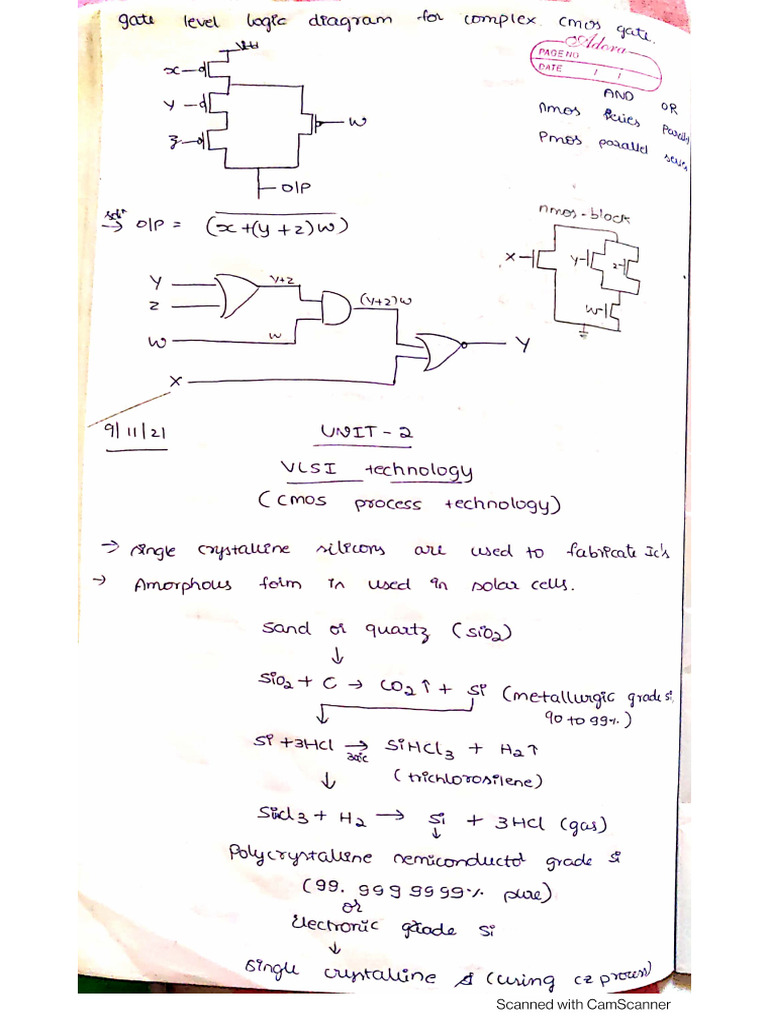 gate level logic diagram for complex cmos gate.
Adora
PAGE NO
DATE / /
Vdd
x
y
z
w
O/P
AND OR
Nmos Series Parallel
Pmos parallel series
soln → O/P = (x+(y+z)w)
nmos-block
X
Y
Z
W
Y
Z
Y+Z
(Y+Z)W
W
W
X
Y
9/11/21
UNIT-2
VLSI technology
(CMOS process technology)
→ Single crystalline silicons are used to fabricate Ic's
→ Amorphous form in used in solar cells.
Sand or quartz (SiO2)
↓
SiO2 + C → CO2↑ + Si (metallurgic grade si,
90 to 99%)
Si + 3HCl → SiHCl3 + H2↑
(trichlorosilene)
↓
Sicl3 + H2 → Si + 3HCl (gas)
↓
Polycrystalline semiconductor grade si
(99.9999999% pure)
or
Electronic grade Si
↓
Single crystalline si (using cz process)
Scanned with CamScanner